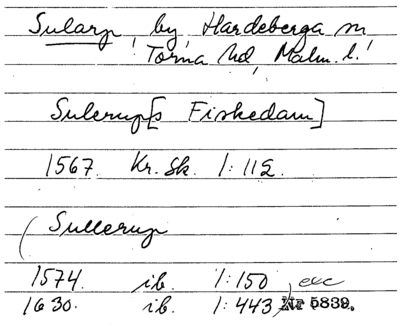 Sularp, by, Hardeberga sn
Torna hd, Malm. l.
Sulerup[s Fiskedam]
1567. Kr. Sk. 1:112.
( Sullerup
1574. ib. 1:150, etc
1630. ib. 1:443, Nr 5839.